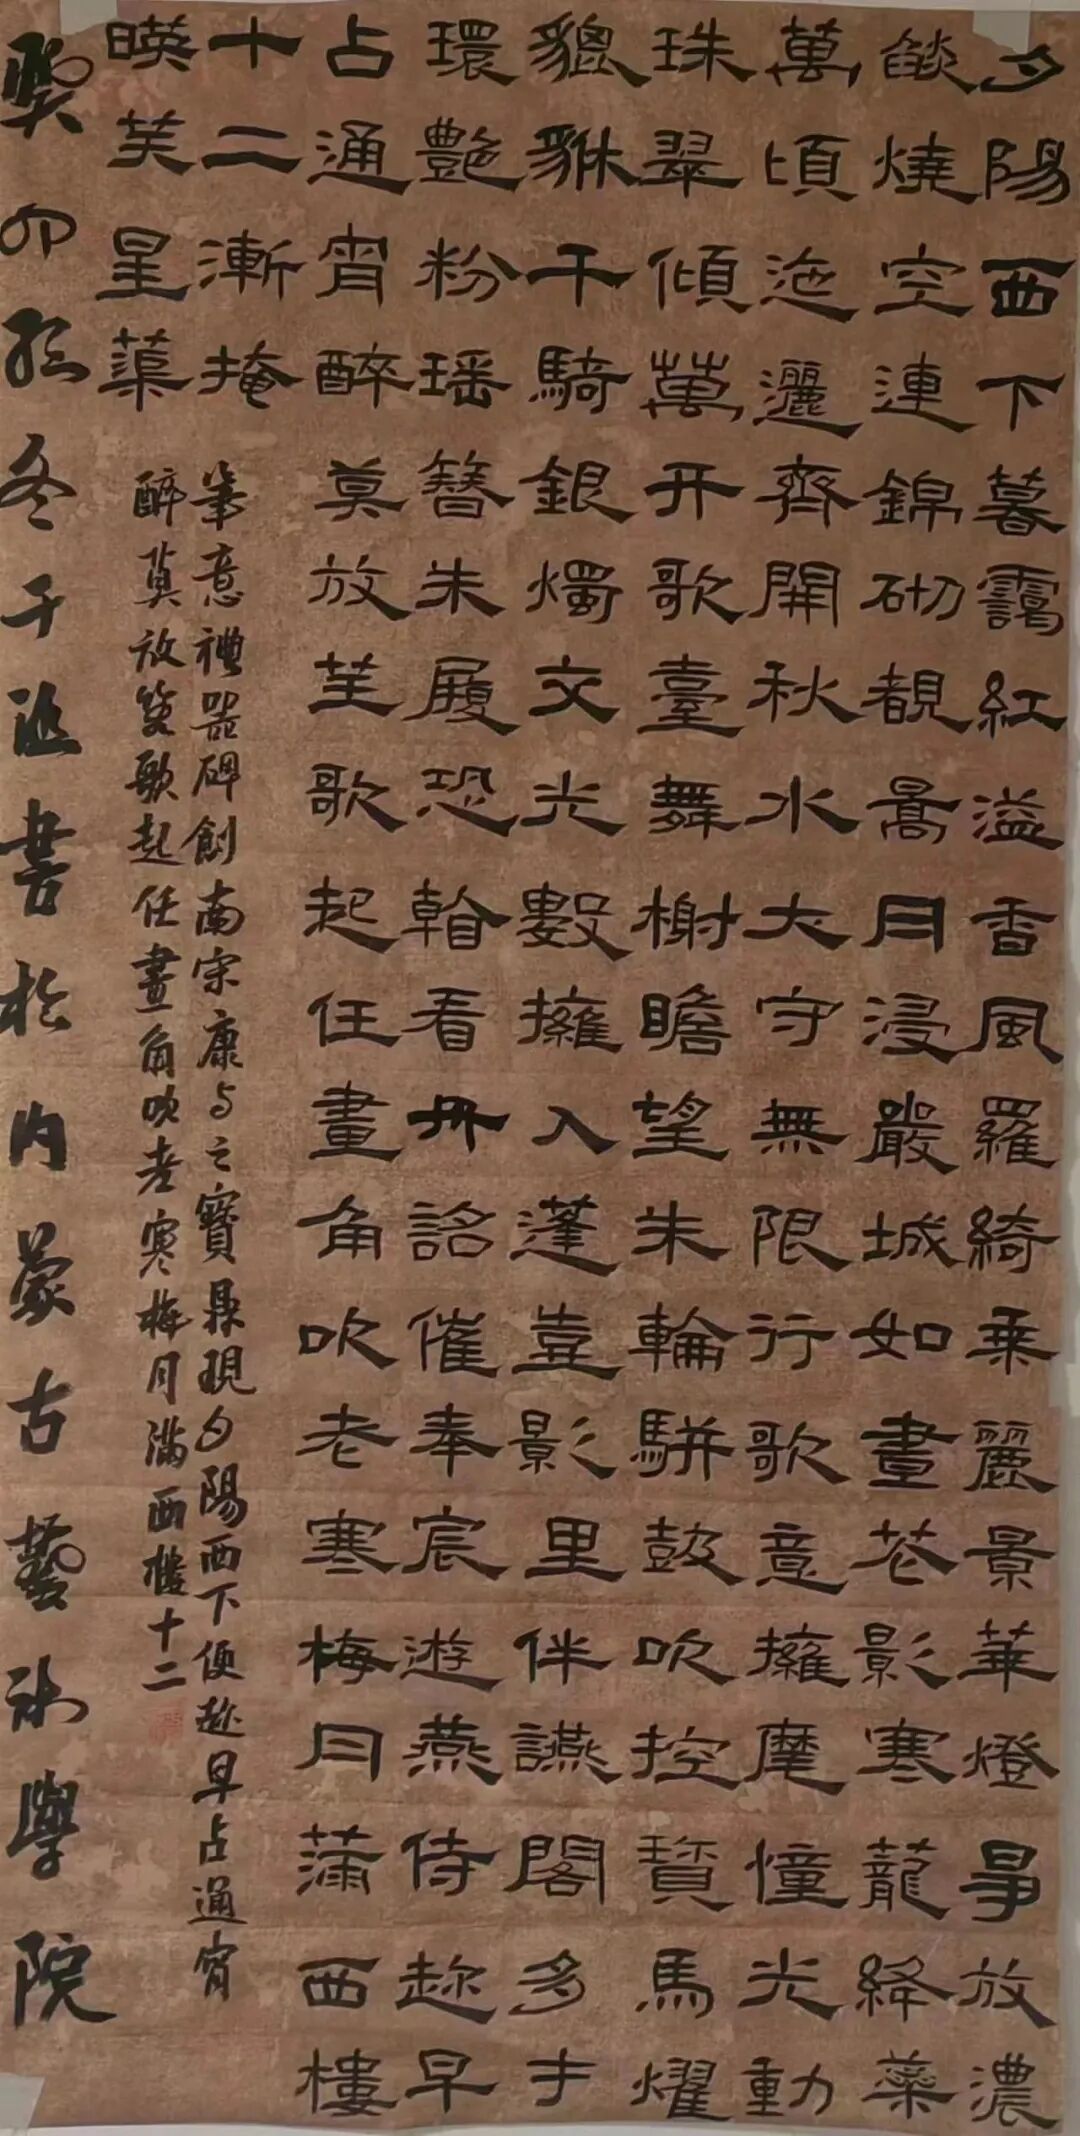 夕陽西下暮靄紅溢香風羅綺乘麗景華燈爭放濃
燄燒空連錦砌覩暠月浸嚴城如晝花影寒蘢絳蘂
萬頃迤邐齊開秋水太守無限行歌意擁麾憧光動
珠翠傾萬井歌臺舞榭瞻望朱輪駢鼓吹控寶馬耀
貔貅千騎銀燭交光數擁入蓬壺影里伴讌閣多才
環艷粉瑤簪朱履恐翰看丹詔催奉宸遊燕侍趂早
占通宵醉莫放笙歌起任畫角吹老寒梅月滿西樓
十二漸掩
暎芙星蕖
筆意禮器碑創南宋康与之寶鼎現夕陽西下便趂早占通宵
醉莫放笙歌起任畫角吹老寒梅月滿西樓十二
癸卯冬于書於內蒙古藝術學院